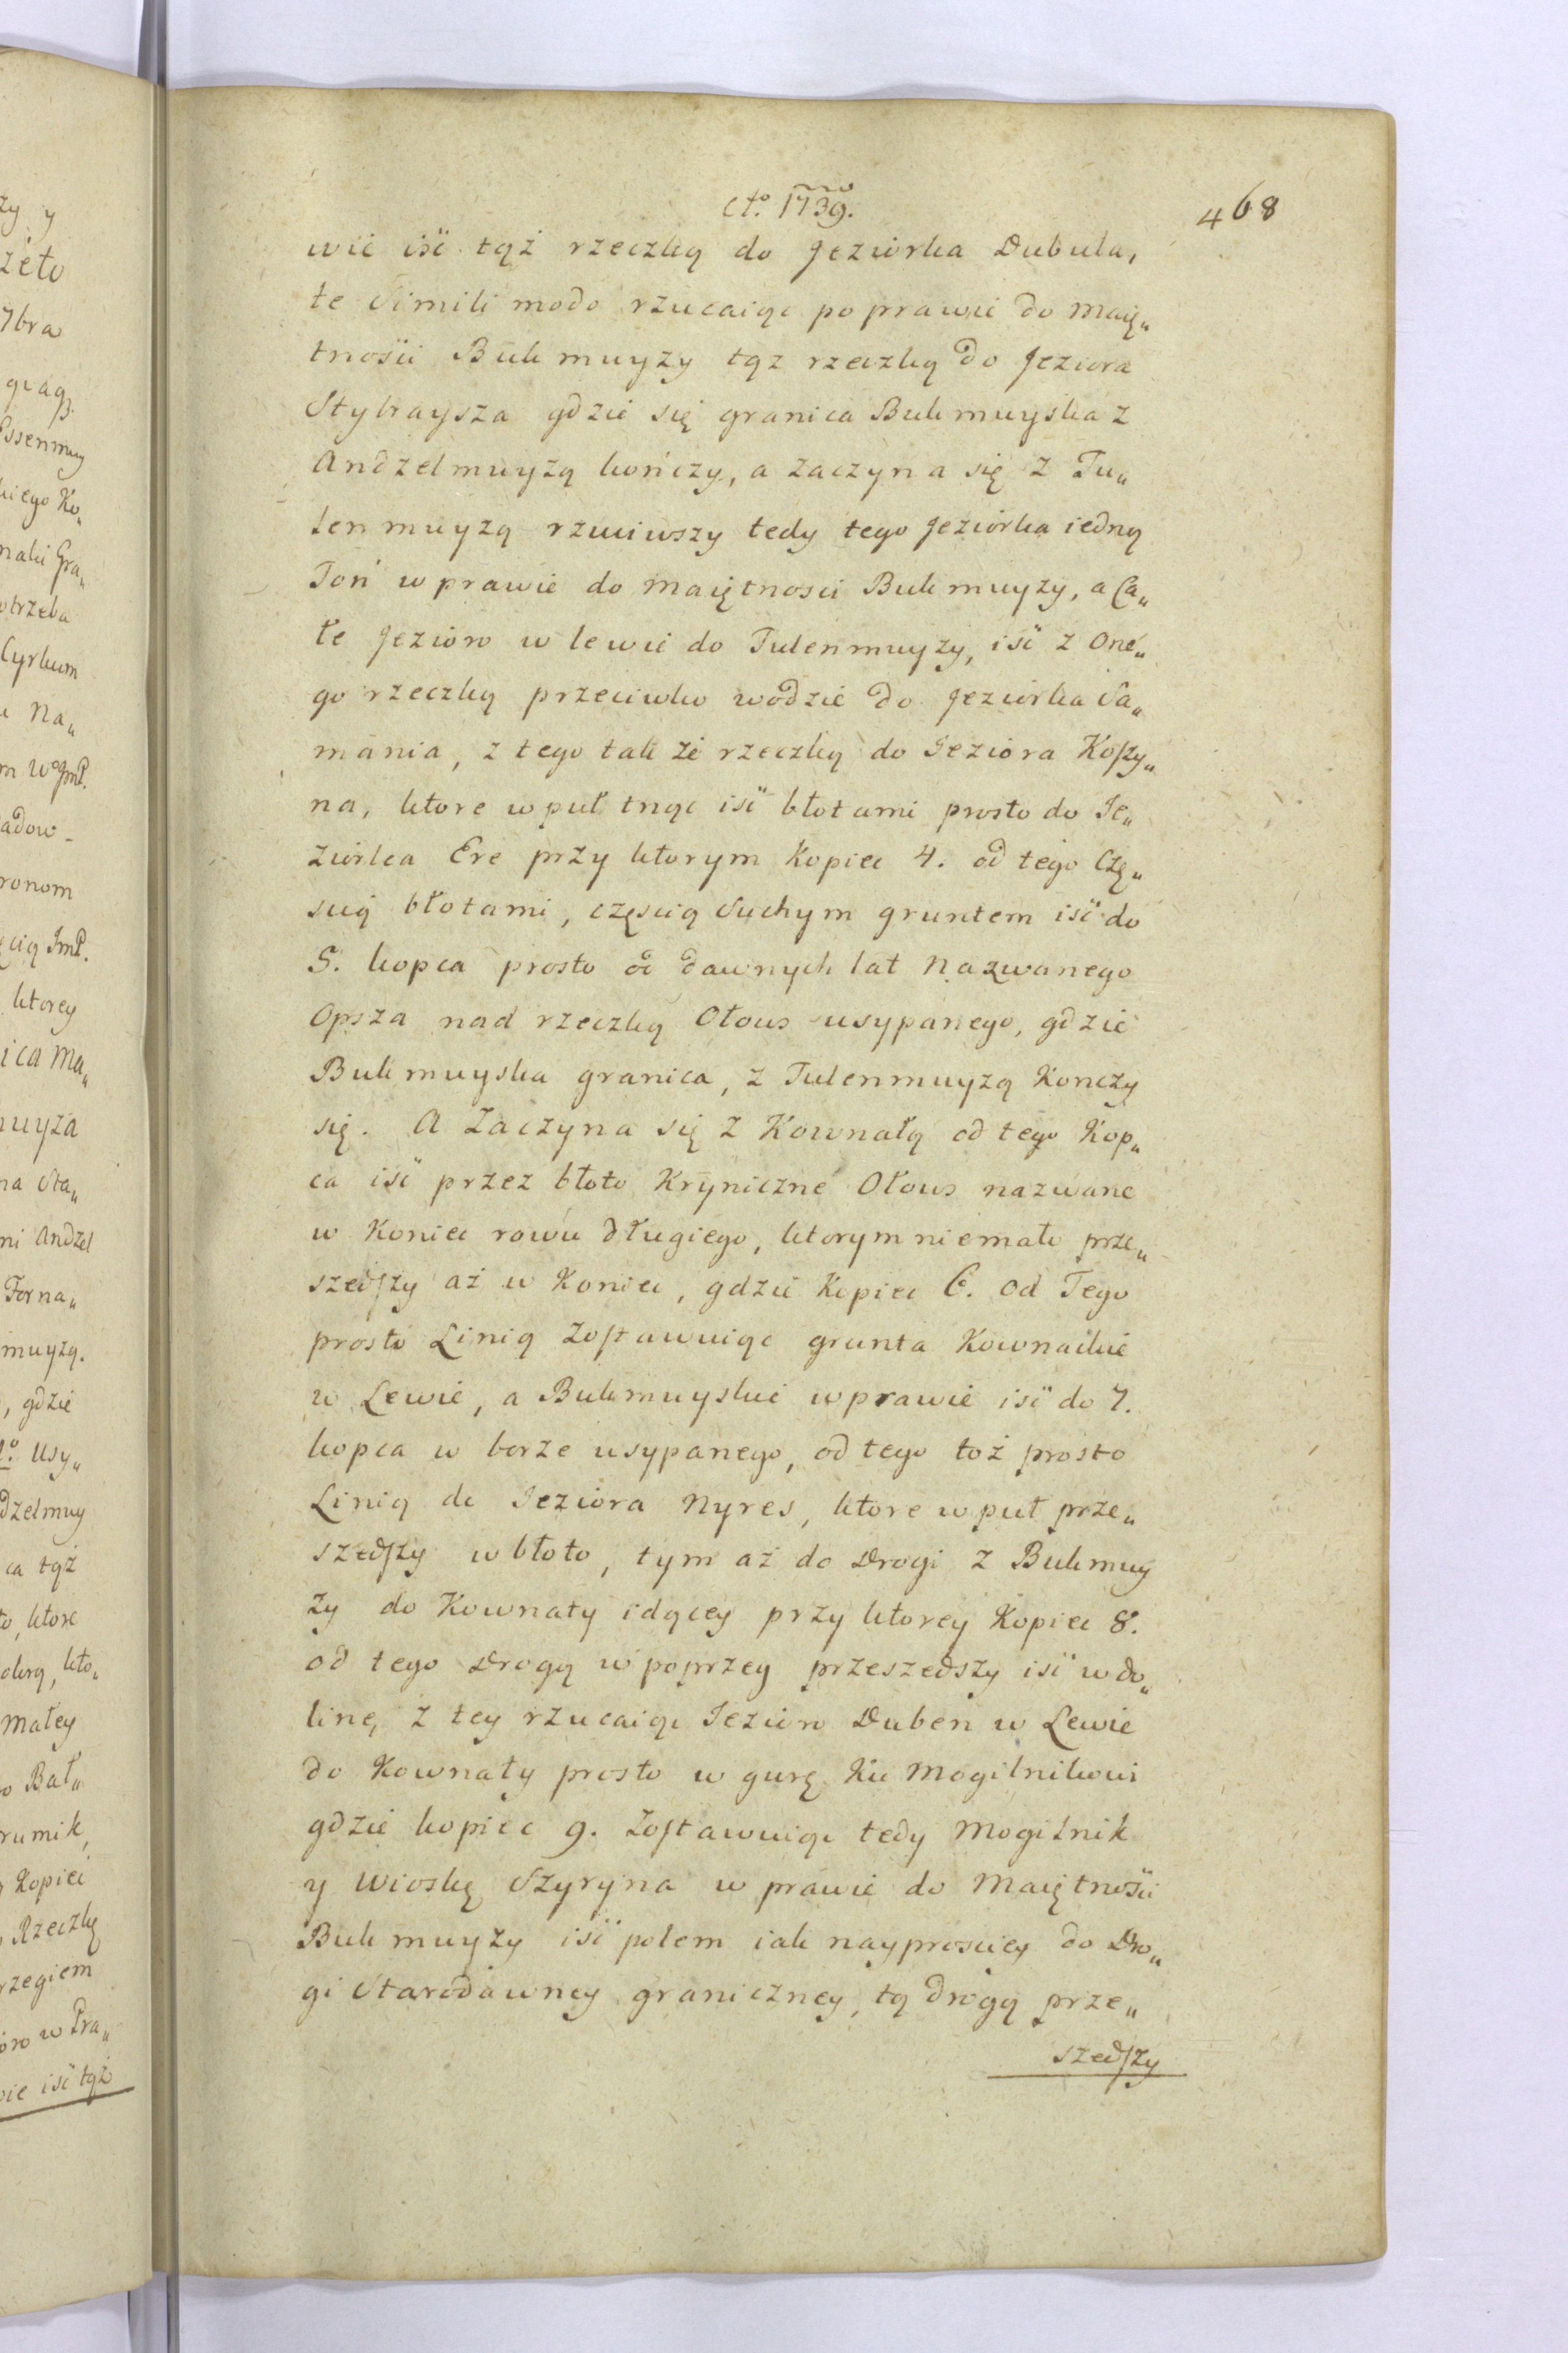 Ao. 1739.
468
wie iść tąż rzeczką do Jeziorka Dubula,
te Simili modo rzucaiąc po prawie do Maię„
tnosci Bukmuyzy tąz rzeczką do Jeziora
Stybraysza gdzie się granica Bukmuyska z
Andzelmuyzą kończy, a zaczyna się z Tu„
lenmuyzą rzuciwszy tedy tego Jeziorka iedną
Toń w prawie do maiętnosci Bukmuyzy, a Ca„
łe Jezioro w lewie do Tulenmuyzy, iść z one„
go rzeczką przeciwko wodzie do Jeziorka Sa„
mania, z tego tak że rzeczką do Jeziora Koszy„
na, ktore w puł tnąc iść błotami prosto do Je„
ziorka Ere przy ktorym Kopiec 4. od tego Czę„
scią błotami, częscią Suchym gruntem iść do
5. kopca prosto od dawnych lat Nazwanego
Opsza nad rzeczką Ołous usypanego, gdzie
Bukmuyska granica, z Tulenmuyzą Konczy
się. A Zaczyna się z Kownatą od tego Kop„
ca iść przez błoto Kryniczne Ołous nazwane
w Koniec rowu długiego, ktorym niemało prze„
szedszy aż w Koniec, gdzie Kopiec 6. od Tego
prosto Linią Zostawuiąc grunta Kownackie
w Lewie, a Bukmuyskie w prawie iść do 7.
kopca w borze usypanego, od tego toż prosto
Linią do Jeziora Nyres, ktore w puł prze„
szedszy w błoto, tym aż do Drogi z Bukmuy
zy do Kownaty idącey przy ktorey Kopiec 8.
od tego Drogą w poprzey przeszedszy iść w do„
linę, z tey rzucaiąc Jezioro Duben w Lewie
do Kownaty prosto w gurę Ku Mogilnikowi
gdzie kopiec 9. Zostawuiąc tedy Mogilnik
y Wioskę Szyryna w prawie do Maiętności
Bukmuyzy iść polem iak nayprosciey do Dro„
gi Starodawney graniczney, tą drogą prze„
szedszy